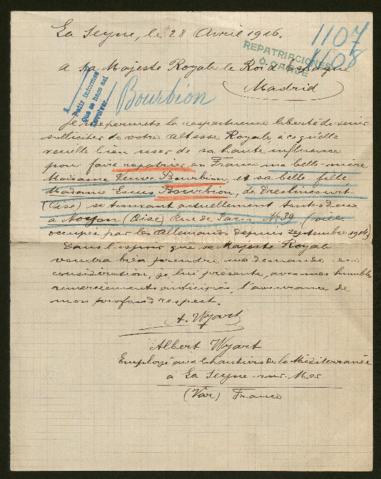 La Seyne, le 28 Avril 1916.
1107
1108
REPATRIACIONES
A sa Majesté Royale le Roi d'Espagne
Madrid
Pedir informes
Que se hace así
Bourbion
Je me permets la respectueuse liberté de venir
solliciter de votre altesse Royale, à ce qu'elle
veuille bien user de sa haute influence
pour faire rapatrier en France ma belle-mère
Madame Bourbion et sa belle fille
Madame Bourbion, de Dreslincourt
(Oise) se trouvant actuellement toutes deux
à Noyon (Oise) Rue de Paris No 39
occupée par les allemands depuis septembre 1914
Dans l'espoir que sa Majesté Royale
voudra bien prendre ma demande en
considération, je lui présente, avec mes humbles
remerciements anticipés, l'assurance de
mon profond respect.
A. Wyart
Albert Wyart
Employé aux Chantiers de la Méditerranée
à La Seyne-sur-Mer
(Var) France